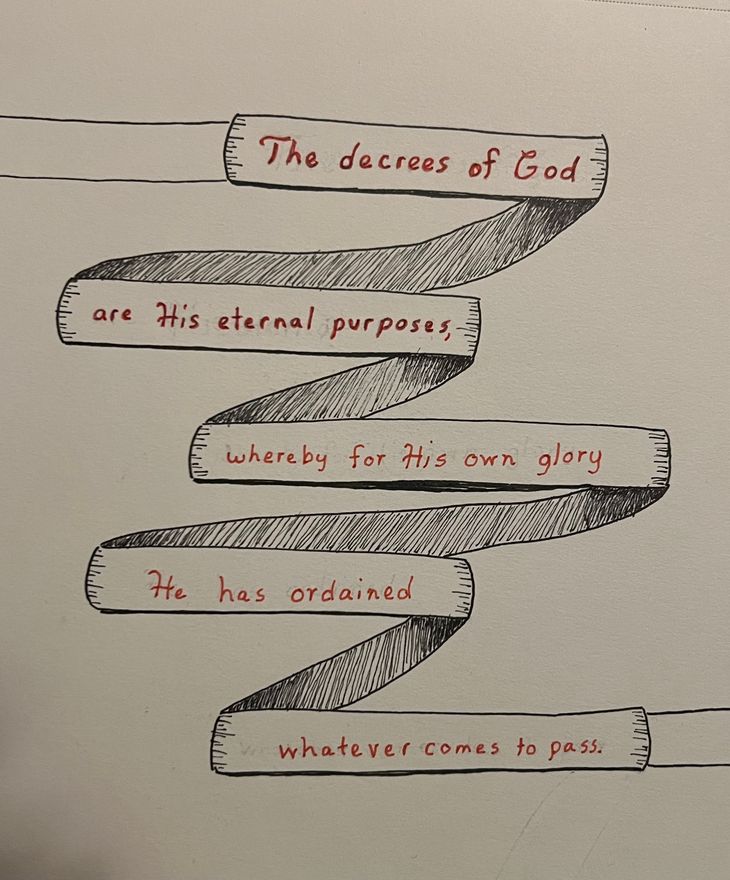 The decrees of God
are His eternal purposes,
whereby for His own glory
He has ordained
whatever comes to pass.